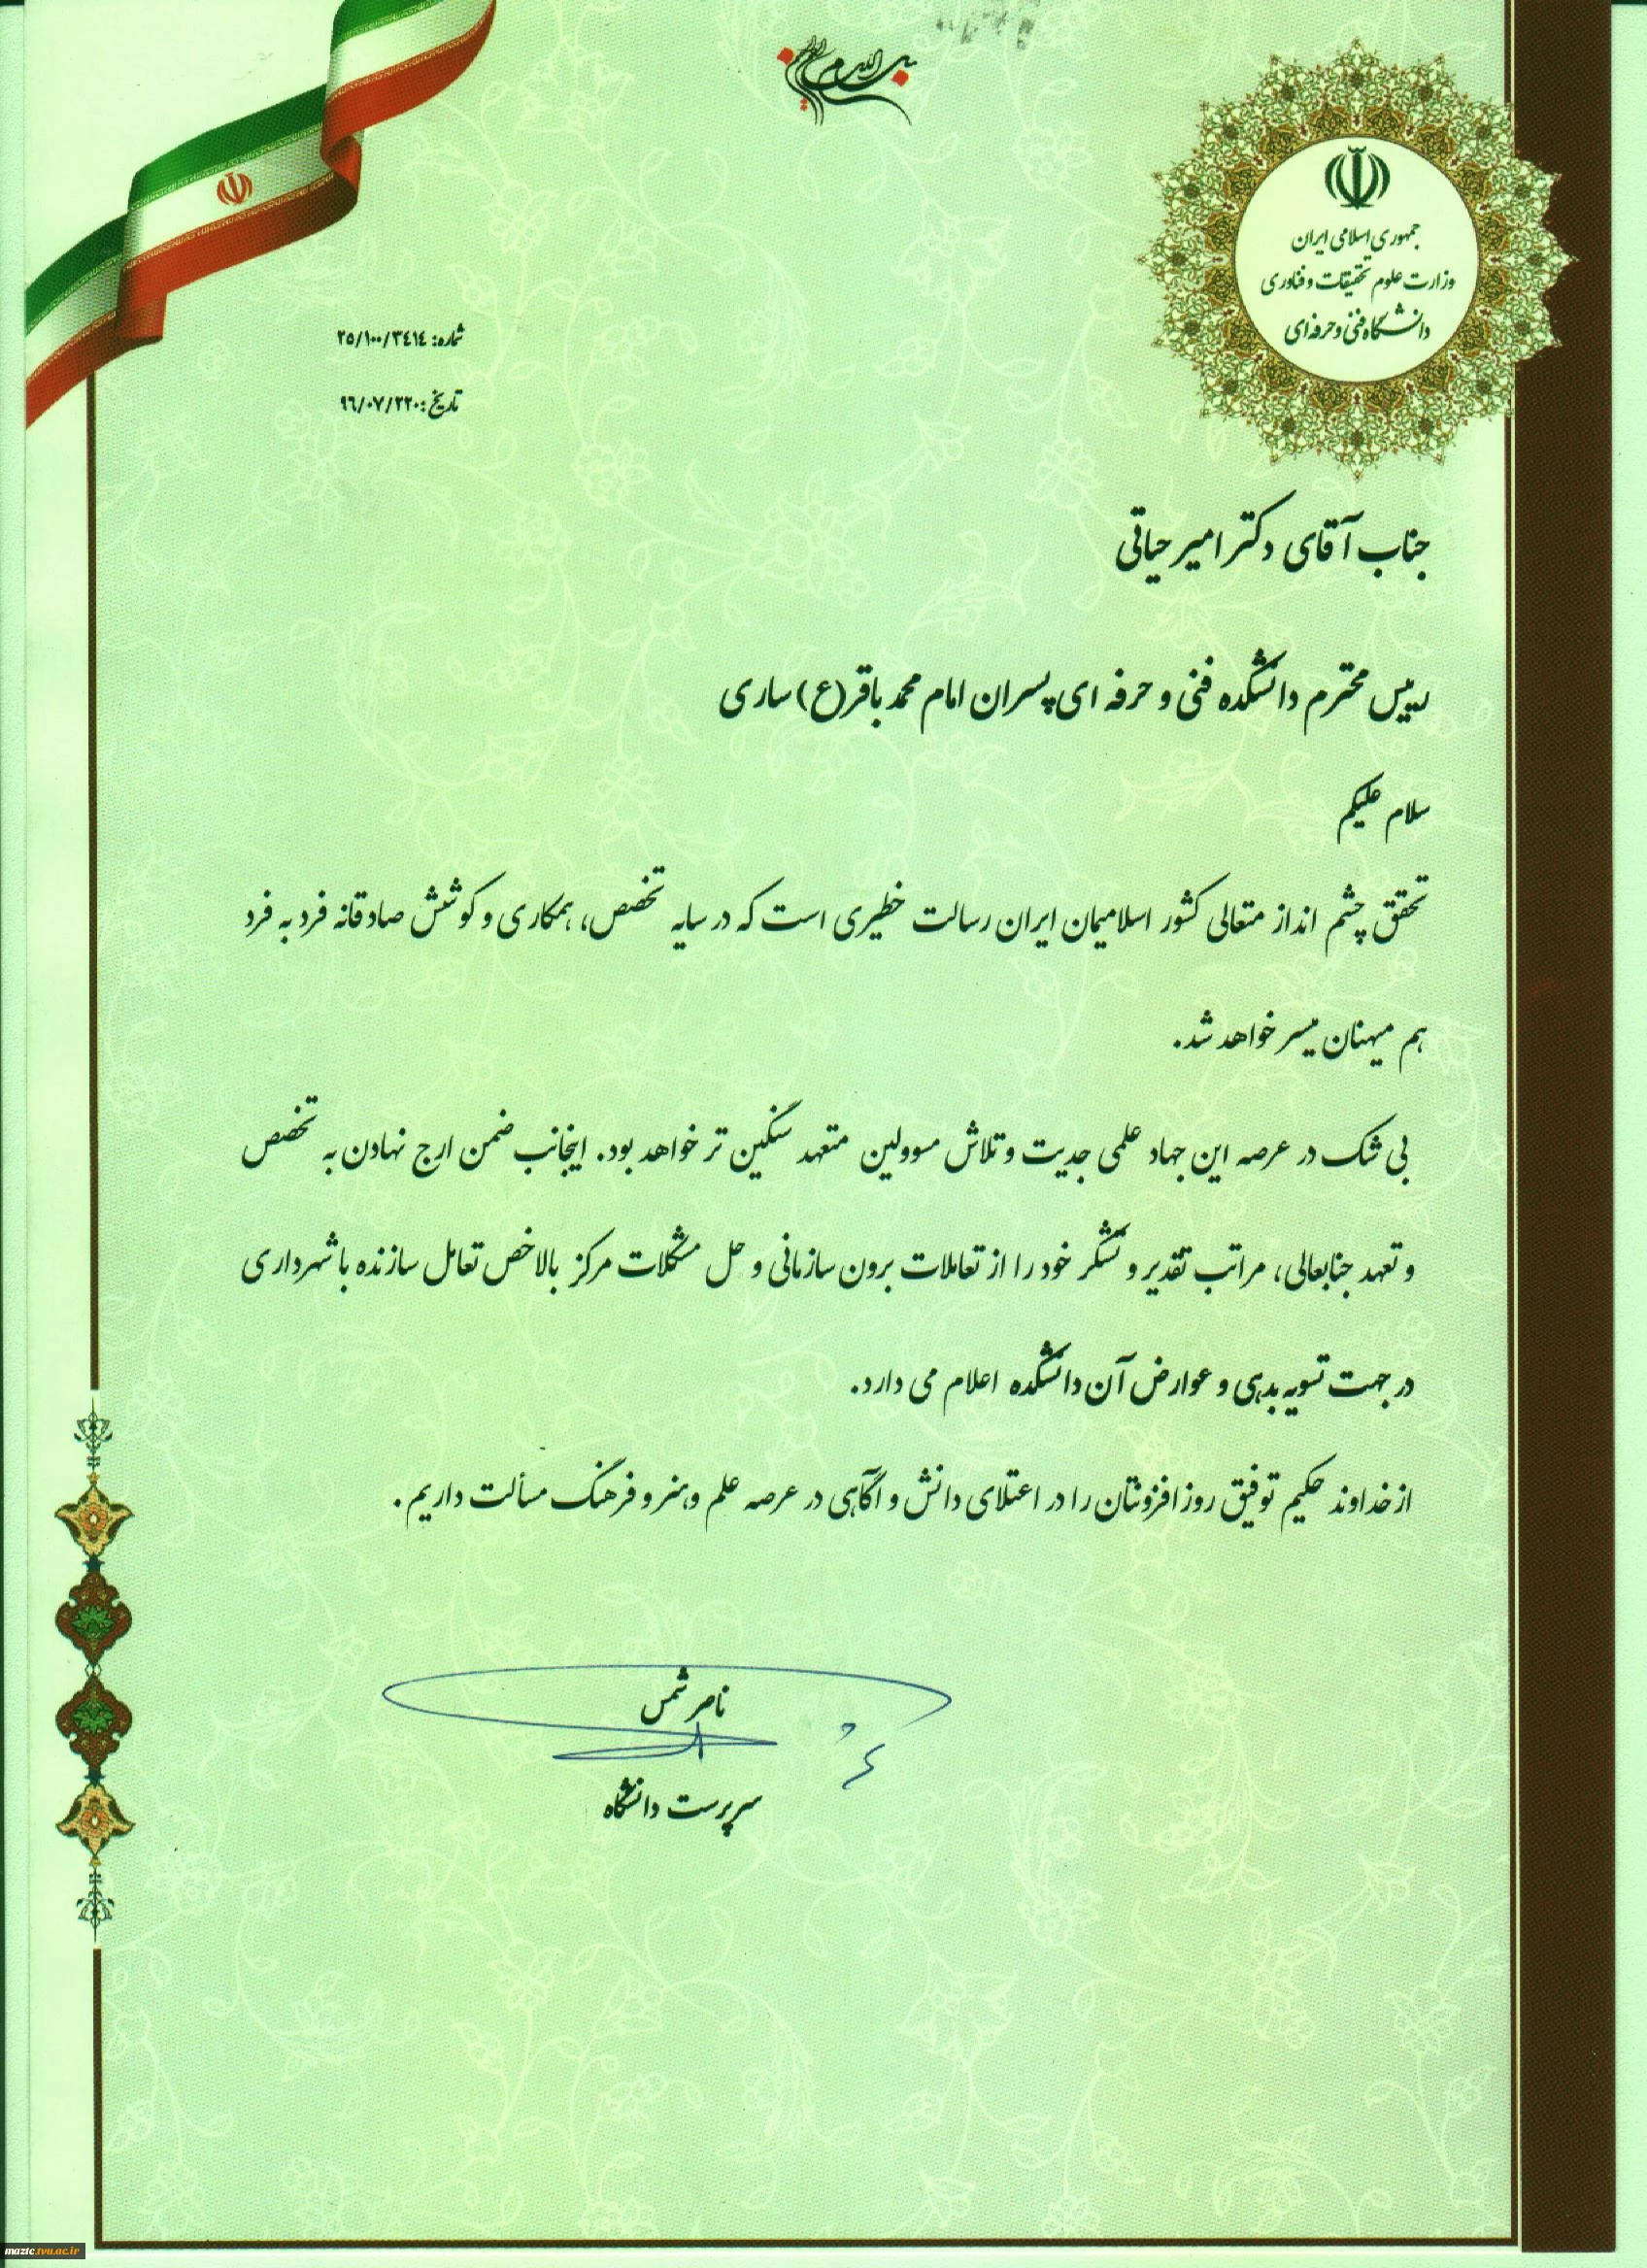 بسم الله الرحمن الرحیم
جمهوری اسلامی ایران
وزارت علوم تحقیقات و فناوری
دانشگاه فنی و حرفه‌ای
شماره: ۲۵/۱۰۰/۳۴۱۴
تاریخ: ۹۶/۰۷/۲۲۰
جناب آقای دکتر امیر حیاتی
رییس محترم دانشکده فنی و حرفه ای پسران امام محمد باقر(ع) ساری
سلام علیکم
تحقق چشم انداز متعالی کشور اسلامیمان ایران رسالت خطیری است که در سایه تخصص، همکاری و کوشش صادقانه فرد به فرد
هم میهنان میسر خواهد شد.
بی شک در عرصه این جهاد علمی جدیت و تلاش مسوولین متعهد سنگین تر خواهد بود. اینجانب ضمن ارج نهادن به تخصص
و تعهد جنابعالی، مراتب تقدیر و تشکر خود را از تعاملات برون سازمانی و حل مشکلات مرکز بالاخص تعامل سازنده با شهرداری
در جهت تسویه بدهی و عوارض آن دانشکده اعلام می دارد.
از خداوند حکیم توفیق روز افزونتان را در اعتلای دانش و آگاهی در عرصه علم و هنر و فرهنگ مسألت داریم.
ناصر شمس
سرپرست دانشگاه
maztc.tvu.ac.ir